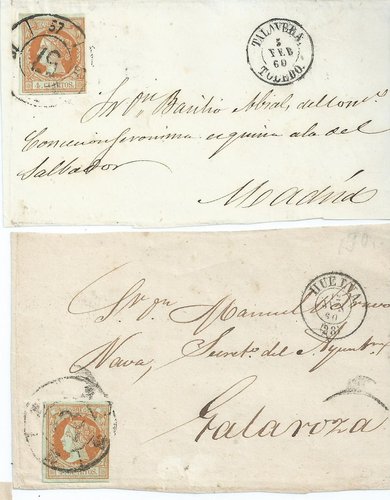 57
57
4 CUARTOS
TALAVERA.
5
FEB
60
TOLEDO.
Sr Dn Basilio
Concepcion Geronima esquina a la del
Salvador
Madrid
HUELVA
60
(28)
Sr Dn Manuel
Nava, Secreto del Ayunto
Galaroza